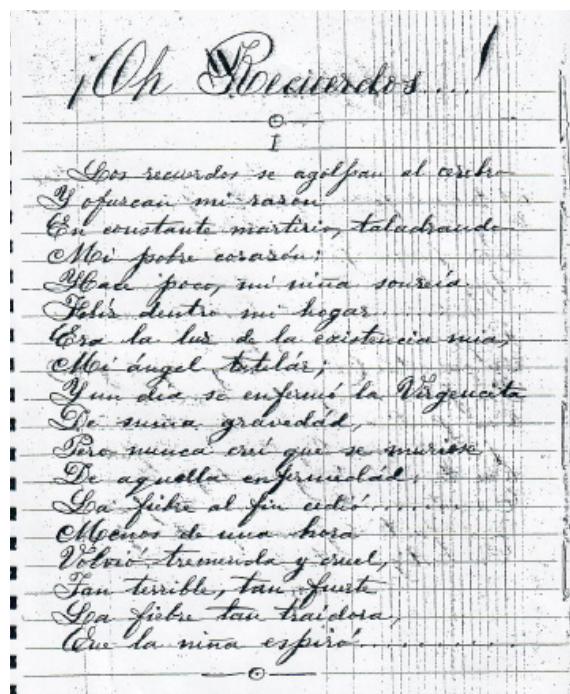 ¡Oh Recuerdos....!
I
Los recuerdos se agolpan al cerebro
Y ofuscan mi razon
En constante martirio, taladrando
Mi pobre corazón;
Hace poco, mi niña sonreía
Feliz dentro mi hogar......
Era la luz de la existencia mia,
Mi ángel tutelár;
Y un dia se enfermó la Virgencita
De suma gravedád,
Pero nunca creí que se muriese
De aquella enfermedád.
La fiebre al fin cedió.........
Menos de una hora
Volvió tremenda y cruel,
Tan terrible, tan fuerte
La fiebre tan traidora,
Que la niña espiró..............